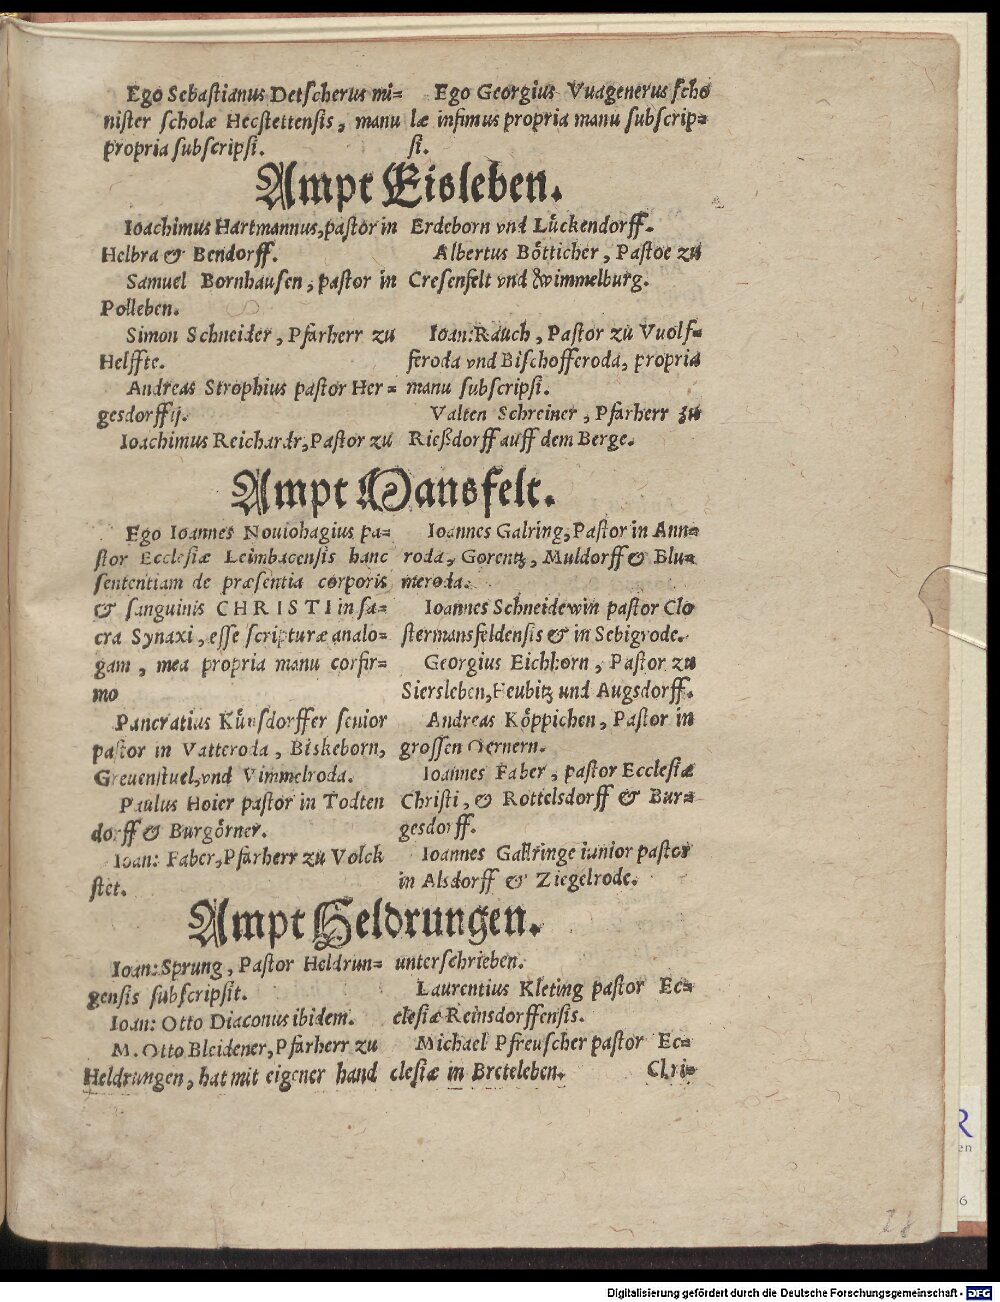 Ego Sebastianus Detscherus mi=
nister scholæ Hecstettensis, manu
propria subscripsi.
Ego Georgius Vuagenerus scho
læ infimus propria manu subscrip=
si.
Ampt Eisleben.
Ioachimus Hartmannus, pastor in
Helbra & Bendorff.
Samuel Bornhausen, pastor in
Polleben.
Simon Schneider, Pfarherr zu
Helffte.
Andreas Strophius pastor Her=
gesdorffij.
Ioachimus Reichardr, Pastor zu
Erdeborn vnd Lückendorff.
Albertus Bötticher, Pastoe zu
Cresenfelt vnd Wimmelburg.
Ioan: Rauch, Pastor zu Vuolf=
feroda vnd Bischofferoda, propria
manu subscripsi.
Valten Schreiner, Pfarherr zu
Rießdorff auff dem Berge.
Ampt Mansfelt.
Ego Ioannes Nouiohagius pa=
stor Ecclesiæ Leimbacensis hanc
sententiam de præsentia corporis
& sanguinis CHRISTI in sa=
cra Synaxi, esse scripturæ analo=
gam, mea propria manu corfir=
mo
Pancratius Künsdorffer senior
pastor in Vatteroda, Biskeborn,
Greuenstuel, vnd Vimmelroda.
Paulus Hoier pastor in Todten
dorff & Burgörner.
Ioan: Faber, Pfarherr zu Volck
stet.
Ioannes Galring, Pastor in Ann=
roda, Gorentz, Muldorff & Blu=
meroda.
Ioannes Schneidewin pastor Clo
stermansfeldensis & in Sebigrode.
Georgius Eichhorn, Pastor zu
Siersleben, Heubitz und Augsdorff.
Andreas Köppichen, Pastor in
grossen Oernern.
Ioannes Faber, pastor Ecclesiæ
Christi, & Rottelsdorff & Bur=
gesdorff.
Ioannes Gallringe iunior pastor
in Alsdorff & Ziegelrode.
Ampt Heldrungen.
Ioan: Sprung, Pastor Heldrun=
gensis subscripsit.
Ioan: Otto Diaconus ibidem.
M. Otto Bleidener, Pfarherr zu
Heldrungen, hat mit eigener hand
unterschrieben.
Laurentius Kleting pastor Ec=
clesiæ Reinsdorffensis.
Michael Pfreuscher pastor Ec=
clesiæ in Breteleben.
Chri=
28
R
en
6
Digitalisierung gefördert durch die Deutsche Forschungsgemeinschaft - DFG